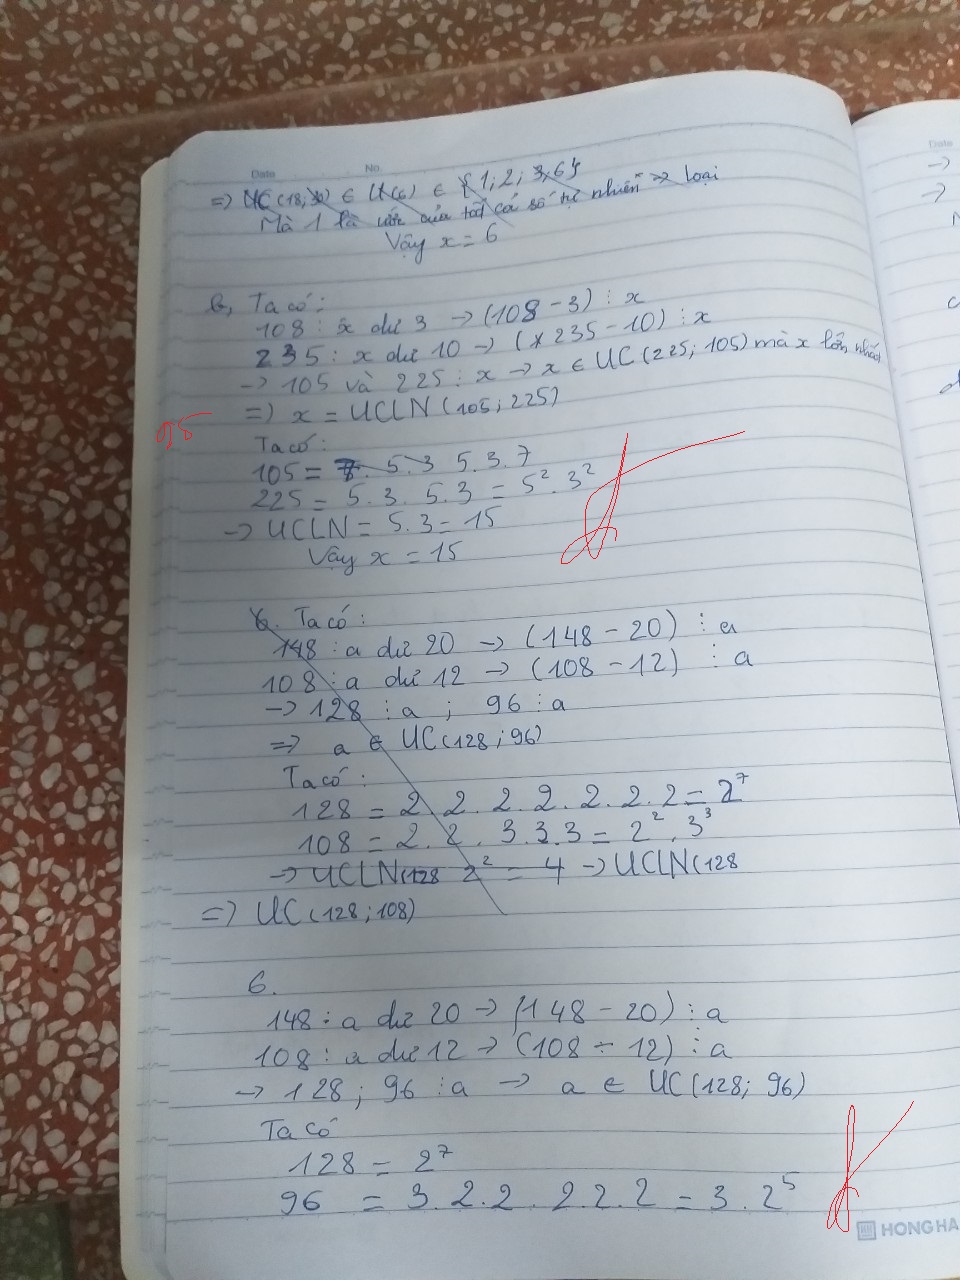 Date No.
=> ƯC (18; 30) ∈ Ư(6) ∈ {1; 2; 3; 6}
Mà 1 là ước của tất cả số tự nhiên => loại
Vậy x = 6
b, Ta có:
108 : x dư 3 → (108 - 3) ⋮ x
235 : x dư 10 → (235 - 10) ⋮ x
→ 105 và 225 ⋮ x → x ∈ ƯC (225; 105) mà x lớn nhất
=> x = ƯCLN (105; 225)
Ta có:
105 = 7. 5.3 5.3.7
225 = 5.3.5.3 = 5². 3²
→ ƯCLN = 5.3 = 15
Vậy x = 15
6. Ta có:
148 : a dư 20 → (148 - 20) ⋮ a
108 : a dư 12 → (108 - 12) ⋮ a
→ 128 ⋮ a ; 96 ⋮ a
=> a ∈ ƯC (128; 96)
Ta có:
128 = 2.2.2.2.2.2.2 = 2⁷
108 = 2.2.3.3.3 = 2².3³
→ ƯCLN(128 2² = 4 → ƯCLN(128
=> ƯC (128; 108)
6.
148 : a dư 20 → (148 - 20) ⋮ a
108 : a dư 12 → (108 - 12) ⋮ a
→ 128; 96 ⋮ a → a ∈ ƯC (128; 96)
Ta có
128 = 2⁷
96 = 3.2.2.2.2.2 = 3.2⁵
HONG HA